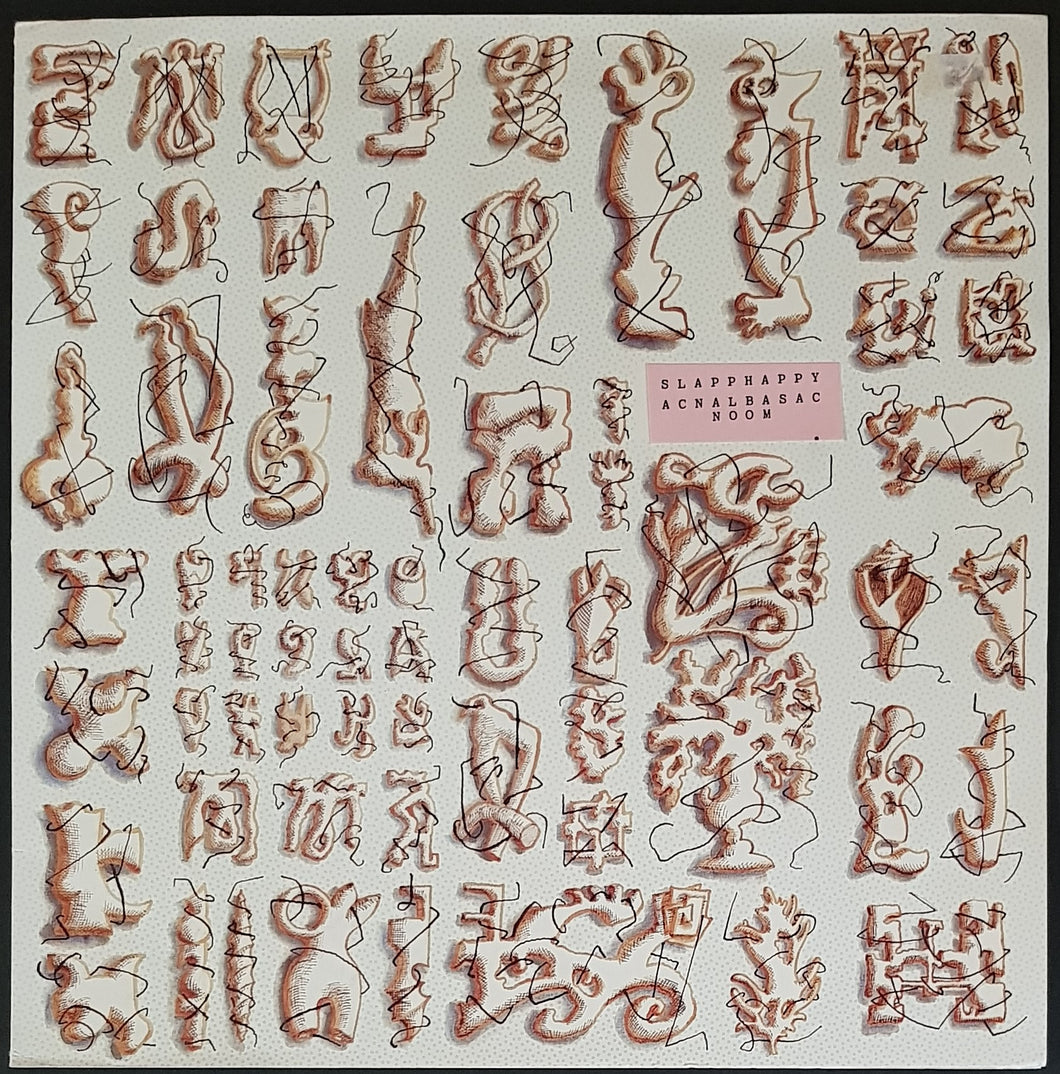 SLAPPHAPPY
ACNALBASAC
NOOM
.